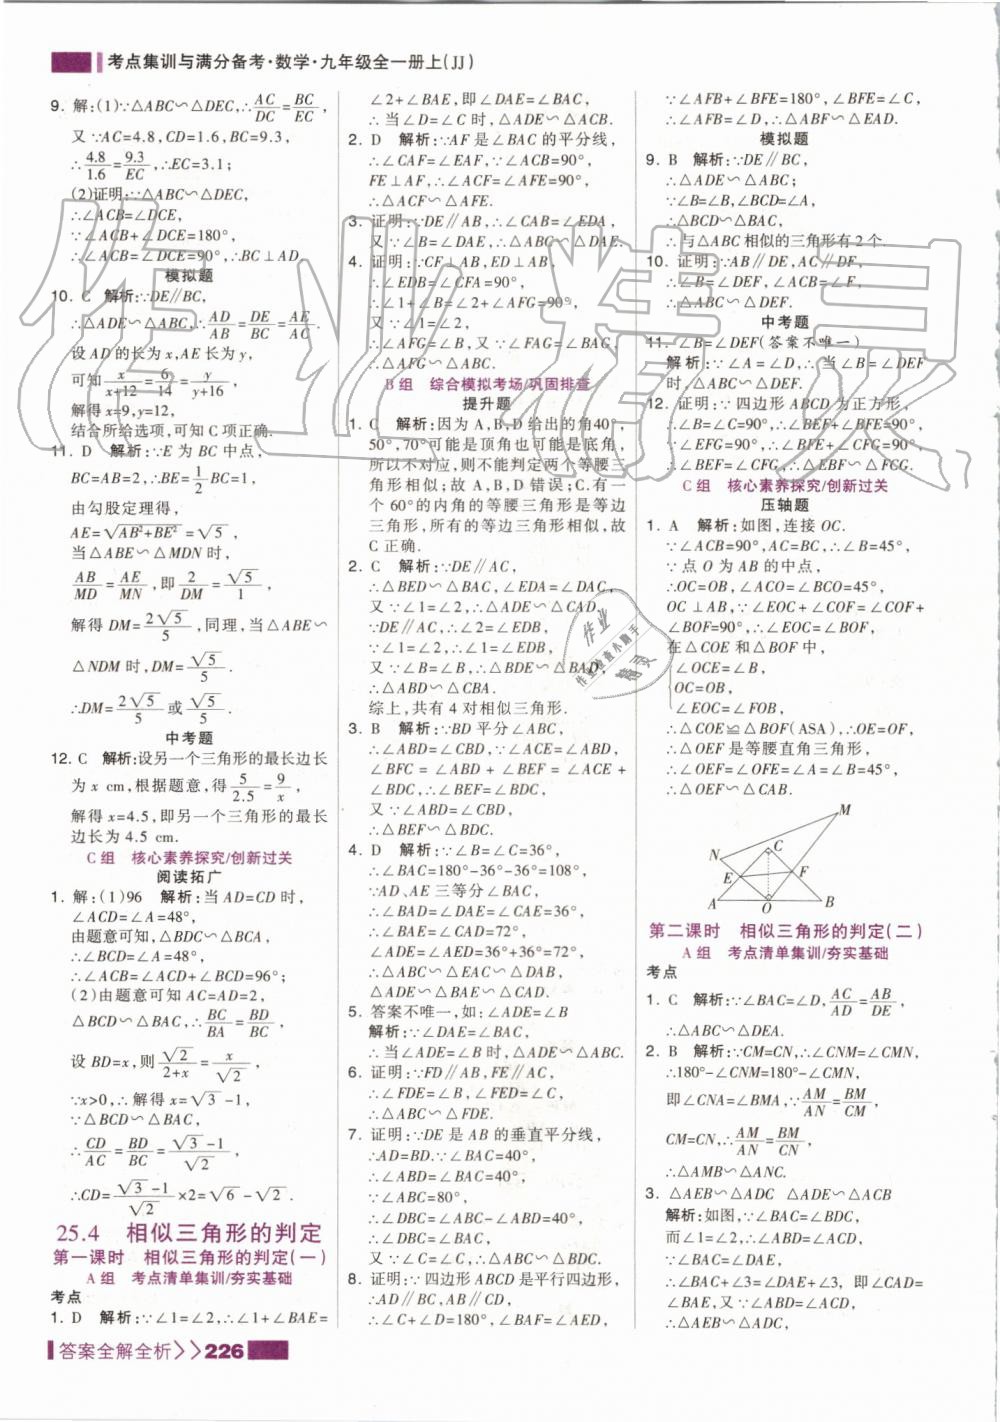 考点集训与满分备考·数学·九年级全一册上(JJ)
9. 解:(1)∵△ABC∽△DEC,∴AC/DC=BC/EC,
又∵AC=4.8,CD=1.6,BC=9.3,
∴4.8/1.6=9.3/EC,∴EC=3.1;
(2)证明:∵△ABC∽△DEC,
∴∠ACB=∠DCE,
∵∠ACB+∠DCE=180°,
∴∠ACB=∠DCE=90°,∴BC⊥AD.
模拟题
10. C 解析:∵DE∥BC,
∴△ADE∽△ABC,∴AD/AB=DE/BC=AE/AC.
设AD的长为x,AE长为y,
可知x/(x+12)=6/14=y/(y+16)
解得x=9,y=12,
结合所给选项,可知C项正确.
11. D 解析:∵E为BC中点,
BC=AB=2,∴BE=1/2BC=1,
由勾股定理得,
AE=√(AB²+BE²)=√5,
当△ABE∽△MDN时,
AB/MD=AE/MN,即2/DM=√5/1,
解得DM=2√5/5,同理,当△ABE∽
△NDM时,DM=√5/5.
∴DM=2√5/5或√5/5.
中考题
12. C 解析:设另一个三角形的最长边长
为x cm,根据题意,得5/2.5=9/x,
解得x=4.5,即另一个三角形的最长
边长为4.5 cm.
C组 核心素养探究/创新过关
阅读拓广
1. 解:(1)96 解析:当AD=CD时,
∠ACD=∠A=48°,
由题意可知,△BDC∽△BCA,
∴∠BCD=∠A=48°,
∴∠ACB=∠ACD+∠BCD=96°;
(2)由题意可知AC=AD=2,
△BCD∽△BAC,∴BC/BA=BD/BC,
设BD=x,则√2/(2+x)=x/√2,
∵x>0,∴解得x=√3-1,
∵△BCD∽△BAC,
∴CD/AC=BD/BC=(√3-1)/√2,
∴CD=(√3-1)/√2×2=√6-√2.
25.4 相似三角形的判定
第一课时 相似三角形的判定(一)
A组 考点清单集训/夯实基础
考点
1. D 解析:∵∠1=∠2,∴∠1+∠BAE=
∠2+∠BAE,即∠DAE=∠BAC,
∴当∠D=∠C时,△ADE∽△ACB.
2. D 解析:∵AF是∠BAC的平分线,
∴∠CAF=∠EAF,∵∠ACB=90°,
FE⊥AF,∴∠ACF=∠AFE=90°,
∴△ACF∽△AFE.
3. 证明:∵DE∥AB,∴∠CAB=∠EDA,
又∵∠B=∠DAE,∴△ABC∽△DAE.
4. 证明:∵CF⊥AB,ED⊥AB,
∴∠EDB=∠CFA=90°,
∴∠1+∠B=∠2+∠AFG=90°,
又∵∠1=∠2,
∴∠AFG=∠B,又∵∠FAG=∠BAC,
∴△AFG∽△ABC.
B组 综合模拟考场/巩固排查
提升题
1. C 解析:因为A,B,D给出的角40°,
50°,70°可能是顶角也可能是底角,
所以不对应,则不能判定两个等腰三
角形相似;故A,B,D错误;C.有一
个60°的内角的等腰三角形是等边
三角形,所有的等边三角形相似,故
C正确.
2. C 解析:∵DE∥AC,
∴△BED∽△BAC,∠EDA=∠DAC,
又∵∠1=∠2,∴△ADE∽△CAD,
∵DE∥AC,∴∠2=∠EDB,
∵∠1=∠2,∴∠1=∠EDB,
又∵∠B=∠B,∴△BDE∽△BAD,
∴△ABD∽△CBA.
综上,共有4对相似三角形.
3. B 解析:∵BD平分∠ABC,
∴∠ABD=∠CBD,∵∠ACE=∠ABD,
∠BFC=∠ABD+∠BEF=∠ACE+
∠BDC,∴∠BEF=∠BDC,
又∵∠ABD=∠CBD,
∴△BEF∽△BDC.
4. D 解析:∵∠B=∠C=36°,
∴∠BAC=180°-36°-36°=108°,
∵AD、AE三等分∠BAC,
∴∠BAD=∠DAE=∠CAE=36°,
∴∠BAE=∠CAD=72°,
∠ADE=∠AED=36°+36°=72°,
∴△ABC∽△EAC∽△DAB,
△ADE∽△BAE∽△CAD.
5. 答案不唯一,如:∠ADE=∠B
解析:∵∠DAE=∠BAC,
∴当∠ADE=∠B时,△ADE∽△ABC.
6. 证明:∵FD∥AB,FE∥AC,
∴∠FDE=∠B,∠FED=∠C,
∴△ABC∽△FDE.
7. 证明:∵DE是AB的垂直平分线,
∴AD=BD.∵∠BAC=40°,
∴∠ABD=∠BAC=40°,
∵∠ABC=80°,
∴∠DBC=∠ABC-∠ABD=40°,
∴∠DBC=∠BAC,
又∵∠C=∠C,∴△ABC∽△BDC.
8. 证明:∵四边形ABCD是平行四边形,
∴AD∥BC,AB∥CD,
∴∠C+∠D=180°,∠BAF=∠AED,
∵∠AFB+∠BFE=180°,∠BFE=∠C,
∴∠AFB=∠D,∴△ABF∽△EAD.
模拟题
9. B 解析:∵DE∥BC,
∴△ADE∽△ABC;
∵∠B=∠B,∠BCD=∠A,
∴△BCD∽△BAC,
∴与△ABC相似的三角形有2个.
10. 证明:∵AB∥DE,AC∥DF,
∴∠B=∠DEF,∠ACB=∠F,
∴△ABC∽△DEF.
中考题
11. ∠B=∠DEF(答案不唯一)
解析:∵∠A=∠D,∴当∠B=∠DEF
时,△ABC∽△DEF.
12. 证明:∵四边形ABCD为正方形,
∴∠B=∠C=90°,∴∠BEF+∠BFE=90°,
∵∠EFG=90°,∴∠BFE+∠CFG=90°,
∴∠BEF=∠CFG,∴△EBF∽△FCG.
C组 核心素养探究/创新过关
压轴题
1. A 解析:如图,连接OC.
∵∠ACB=90°,AC=BC,∴∠B=45°,
∵点O为AB的中点,
∴OC=OB,∠ACO=∠BCO=45°,
OC⊥AB,∵∠EOC+∠COF=∠COF+
∠BOF=90°,∴∠EOC=∠BOF,
在△COE和△BOF中,
∠OCE=∠B,
OC=OB,
∠EOC=∠FOB,
∴△COE≌△BOF(ASA),∴OE=OF,
∴△OEF是等腰直角三角形,
∴∠OEF=∠OFE=∠A=∠B=45°,
∴△OEF∽△CAB.
M
N
C
E
F
A
O
B
第二课时 相似三角形的判定(二)
A组 考点清单集训/夯实基础
考点
1. C 解析:∵∠BAC=∠D,AC/AD=AB/DE,
∴△ABC∽△DEA.
2. B 解析:∵CM=CN,∴∠CNM=∠CMN,
∴180°-∠CNM=180°-∠CMN,
即∠CNA=∠BMA,∵AM/AN=BM/CM,
CM=CN,∴AM/AN=BM/CN
∴△AMB∽△ANC.
3. △AEB∽△ADC △ADE∽△ACB
解析:如图,∵∠BEC=∠BDC,
而∠1=∠2,∴∠ABE=∠ACD,
∵∠BAC=∠DAE,
∴∠BAC+∠3=∠DAE+∠3,即∠CAD=
∠BAE,又∵∠ABE=∠ACD,
∴△AEB∽△ADC,
答案全解全析>>226
作业精灵
作业检查小助手